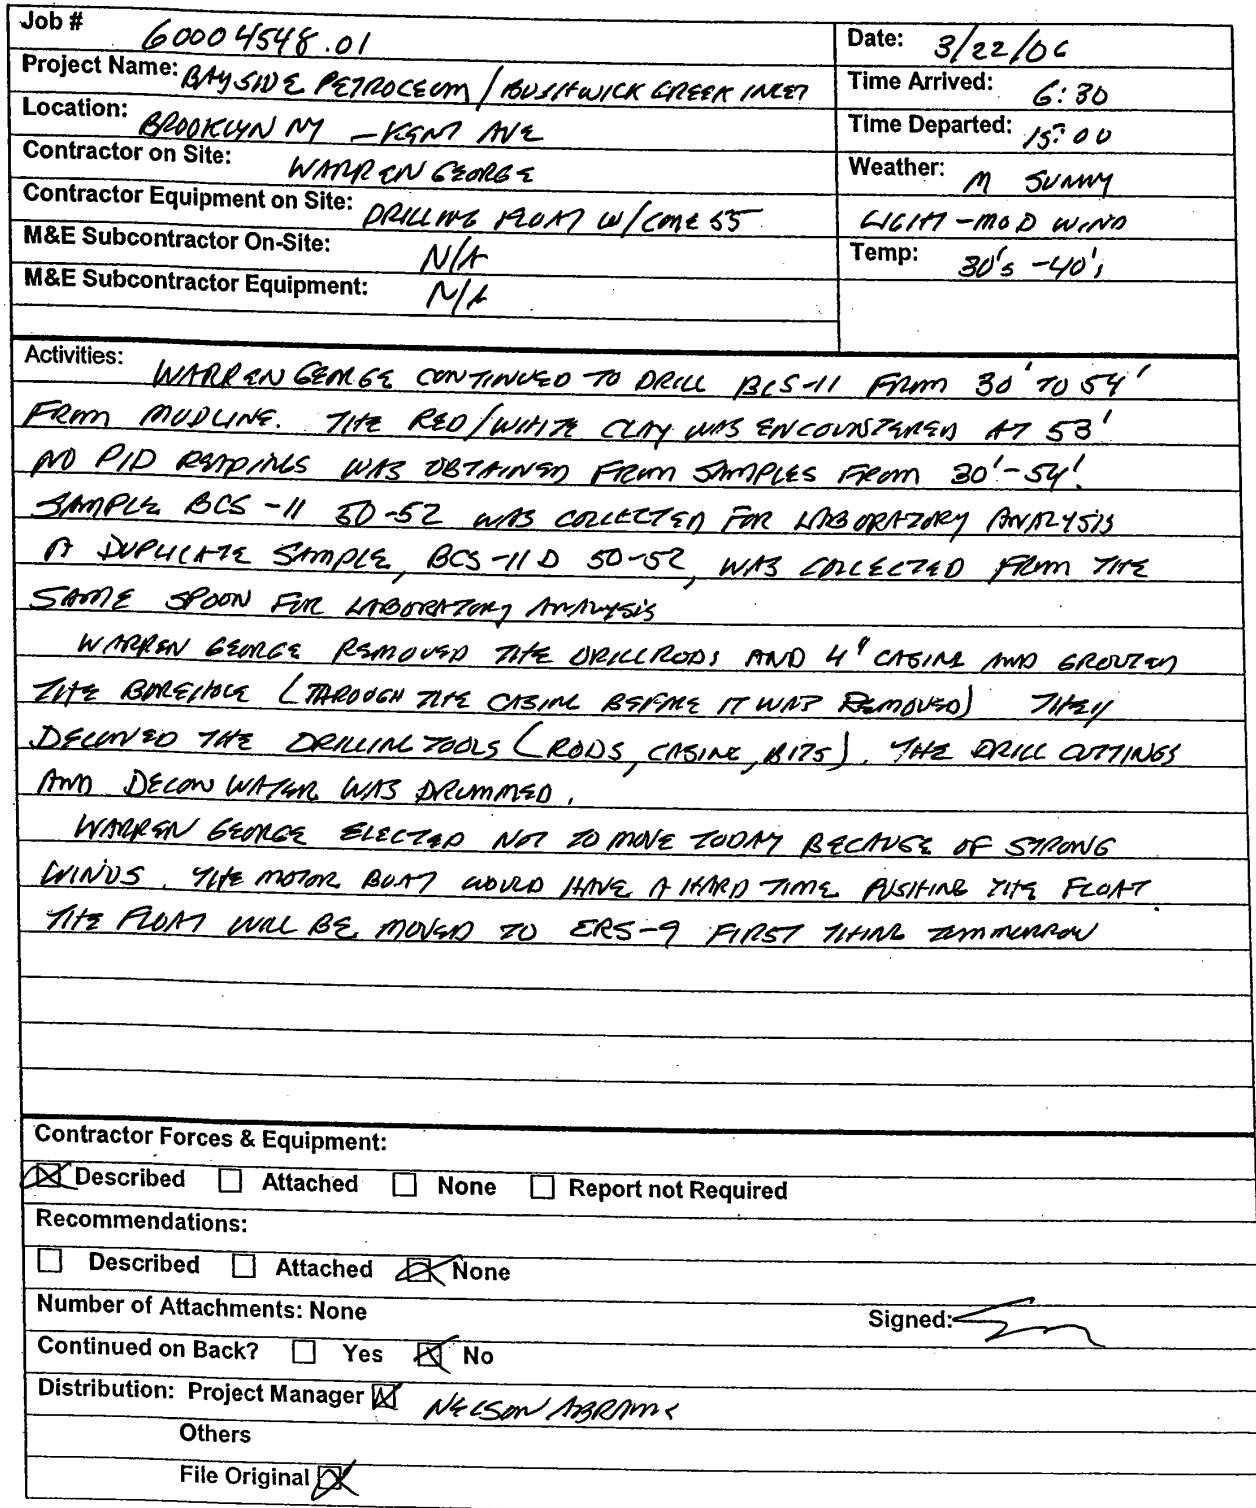 Job # 60004548.01
Date: 3/22/06
Project Name: BAYSIDE PETROLEUM / BUSHWICK CREEK INLET
Time Arrived: 6:30
Location: BROOKLYN NY - KENT AVE
Time Departed: 15:00
Contractor on Site: WARREN GEORGE
Weather: M SUNNY
Contractor Equipment on Site: DRILLING FLOAT W/ CME 55
LIGHT - MOD WIND
M&E Subcontractor On-Site: N/A
Temp: 30's - 40's
M&E Subcontractor Equipment: N/A
Activities: WARREN GEORGE CONTINUED TO DRILL BCS-11 FROM 30' TO 54'
FROM MUDLINE. THE RED/WHITE CLAY WAS ENCOUNTERED AT 53'
NO PID READINGS WAS OBTAINED FROM SAMPLES FROM 30'-54'.
SAMPLE BCS-11 50-52 WAS COLLECTED FOR LABORATORY ANALYSIS
A DUPLICATE SAMPLE, BCS-11D 50-52, WAS COLLECTED FROM THE
SAME SPOON FOR LABORATORY ANALYSIS
WARREN GEORGE REMOVED THE DRILL RODS AND 4" CASING AND GROUTED
THE BOREHOLE (THROUGH THE CASING BEFORE IT WAS REMOVED) THEY
DECONED THE DRILLING TOOLS (RODS, CASING, BITS). THE DRILL CUTTINGS
AND DECON WATER WAS DRUMMED.
WARREN GEORGE ELECTED NOT TO MOVE TODAY BECAUSE OF STRONG
WINDS. THE MOTOR BOAT WOULD HAVE A HARD TIME PUSHING THE FLOAT.
THE FLOAT WILL BE MOVED TO ERS-9 FIRST THING TOMMORROW
Contractor Forces & Equipment:
Described Attached None Report not Required
Recommendations:
Described Attached None
Number of Attachments: None
Signed:
Continued on Back? Yes No
Distribution: Project Manager NELSON ABRAMS
Others
File Original